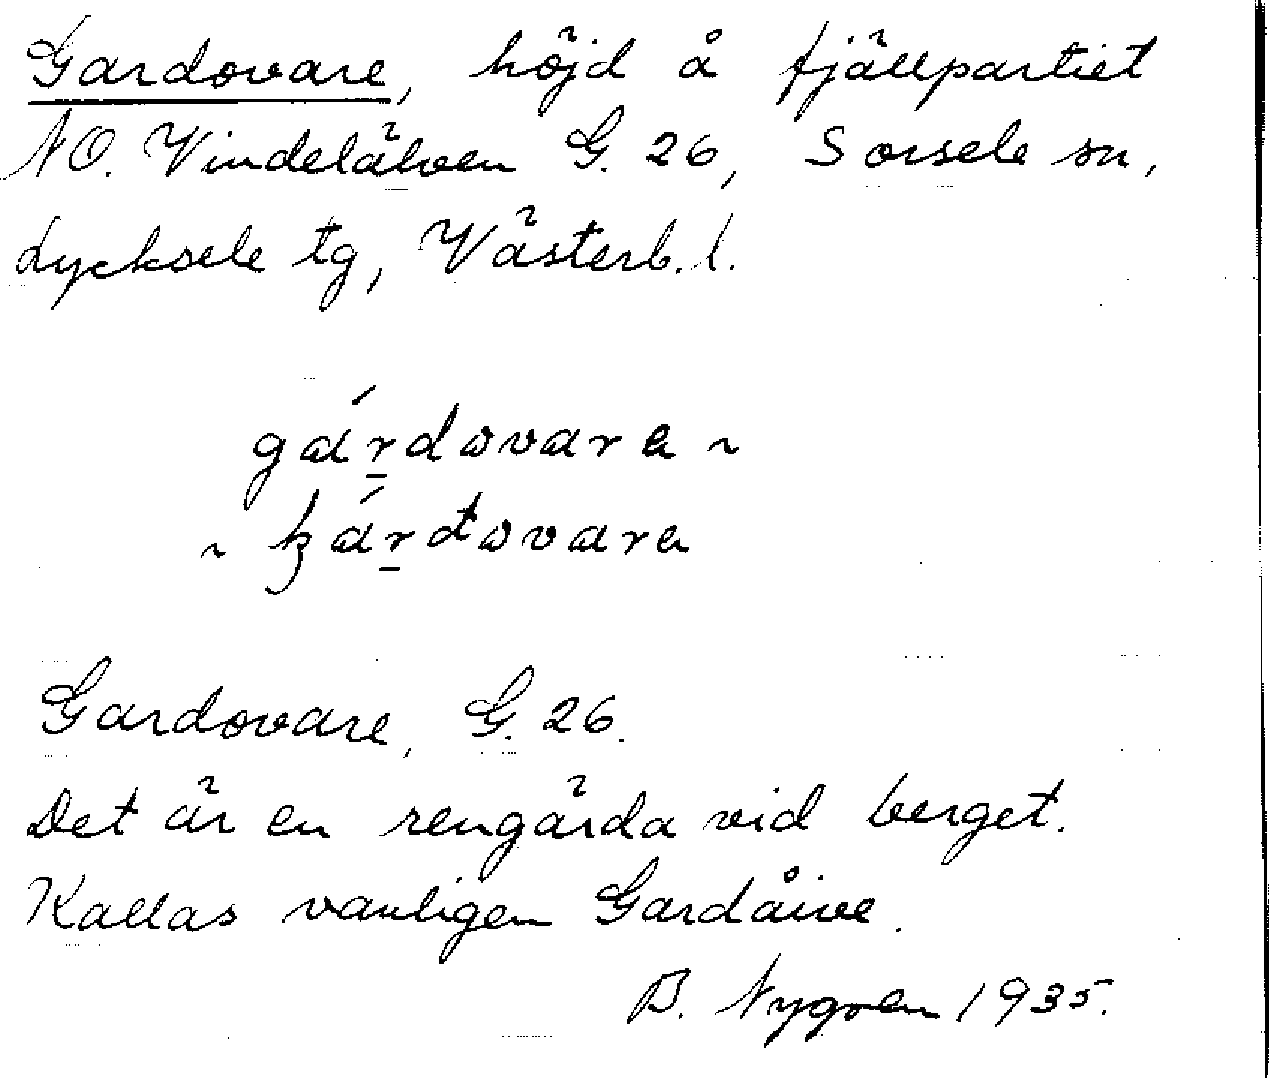 Gardovare, höjd å fjällpartiet
NO. Vindelälven G. 26, Sorsele sn,
Lycksele tg, Västerb. l.
gárdovare ~
~ kárdovare
Gardovare, G. 26.
Det är en rengärda vid berget.
Kallas vanligen Gardåive.
B. Nygren 1935.